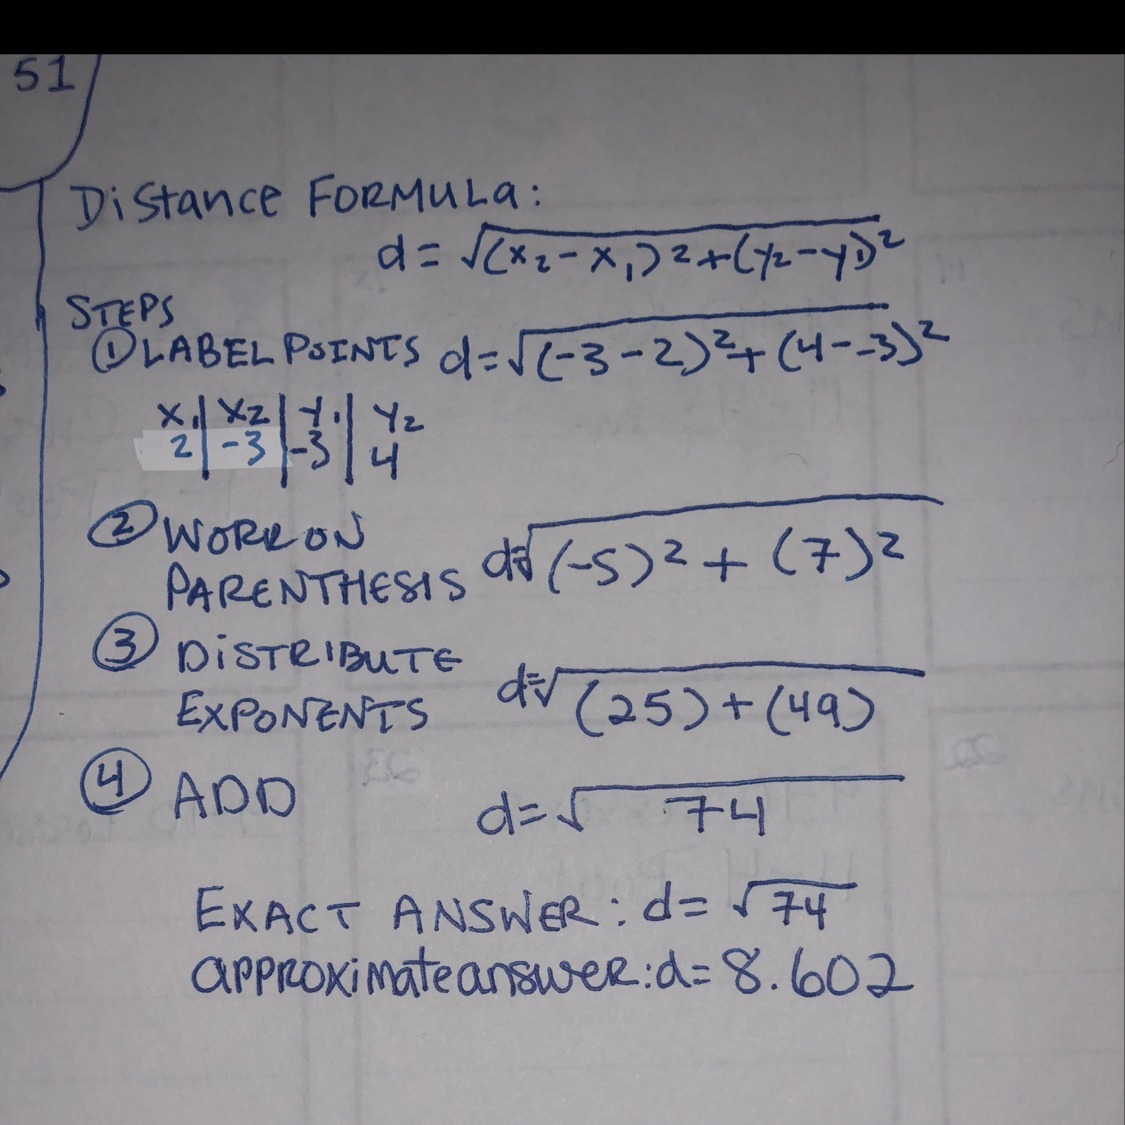 51
Distance FORMULA:
d = √(x₂ - x₁)² + (y₂ - y₁)²
STEPS
① LABEL POINTS d = √(-3 - 2)² + (4 - -3)²
x₁ | x₂ | y₁ | y₂
2 | -3 | -3 | 4
② WORK ON
PARENTHESIS d = √(-5)² + (7)²
③ DISTRIBUTE
EXPONENTS d = √(25) + (49)
④ ADD d = √74
EXACT ANSWER: d = √74
approximate answer: d = 8.602